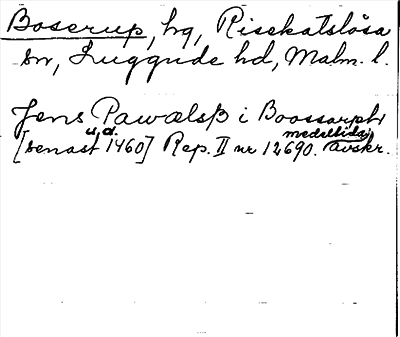 Boserup, hg, Risekatslösa
sn, Luggude hd, Malm. l.
Jens Pawælsß i Boossarpht
u. d.
[senast 1460] Rep. II nr 12690. medeltida avskr.